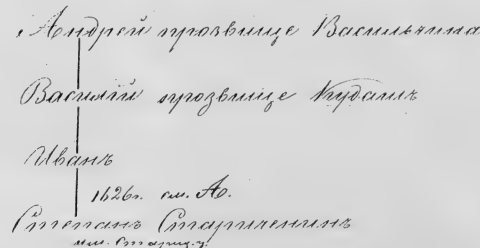 Андрей прозвище Васильчина
Василій прозвище Кудашъ
Иванъ
1626г. см. А.
Степанъ Стариченинъ